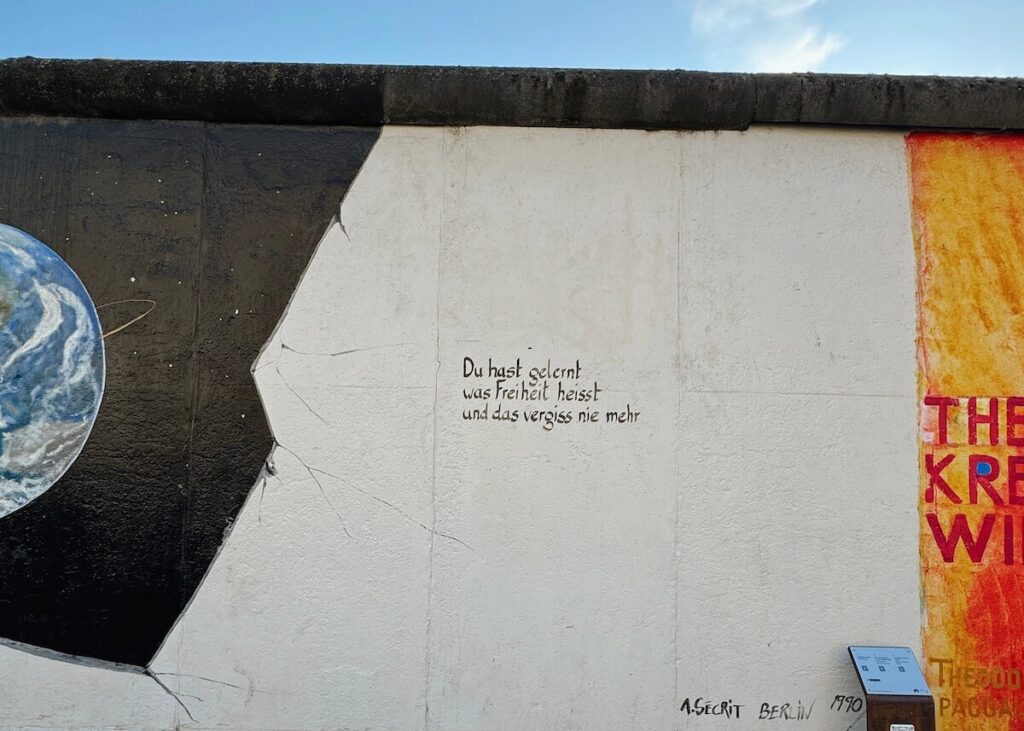 Du hast gelernt
was Freiheit heisst
und das vergiss nie mehr
A.SECRIT BERLIN 1990
THE
KRE
WI
THEODO
PAGGA